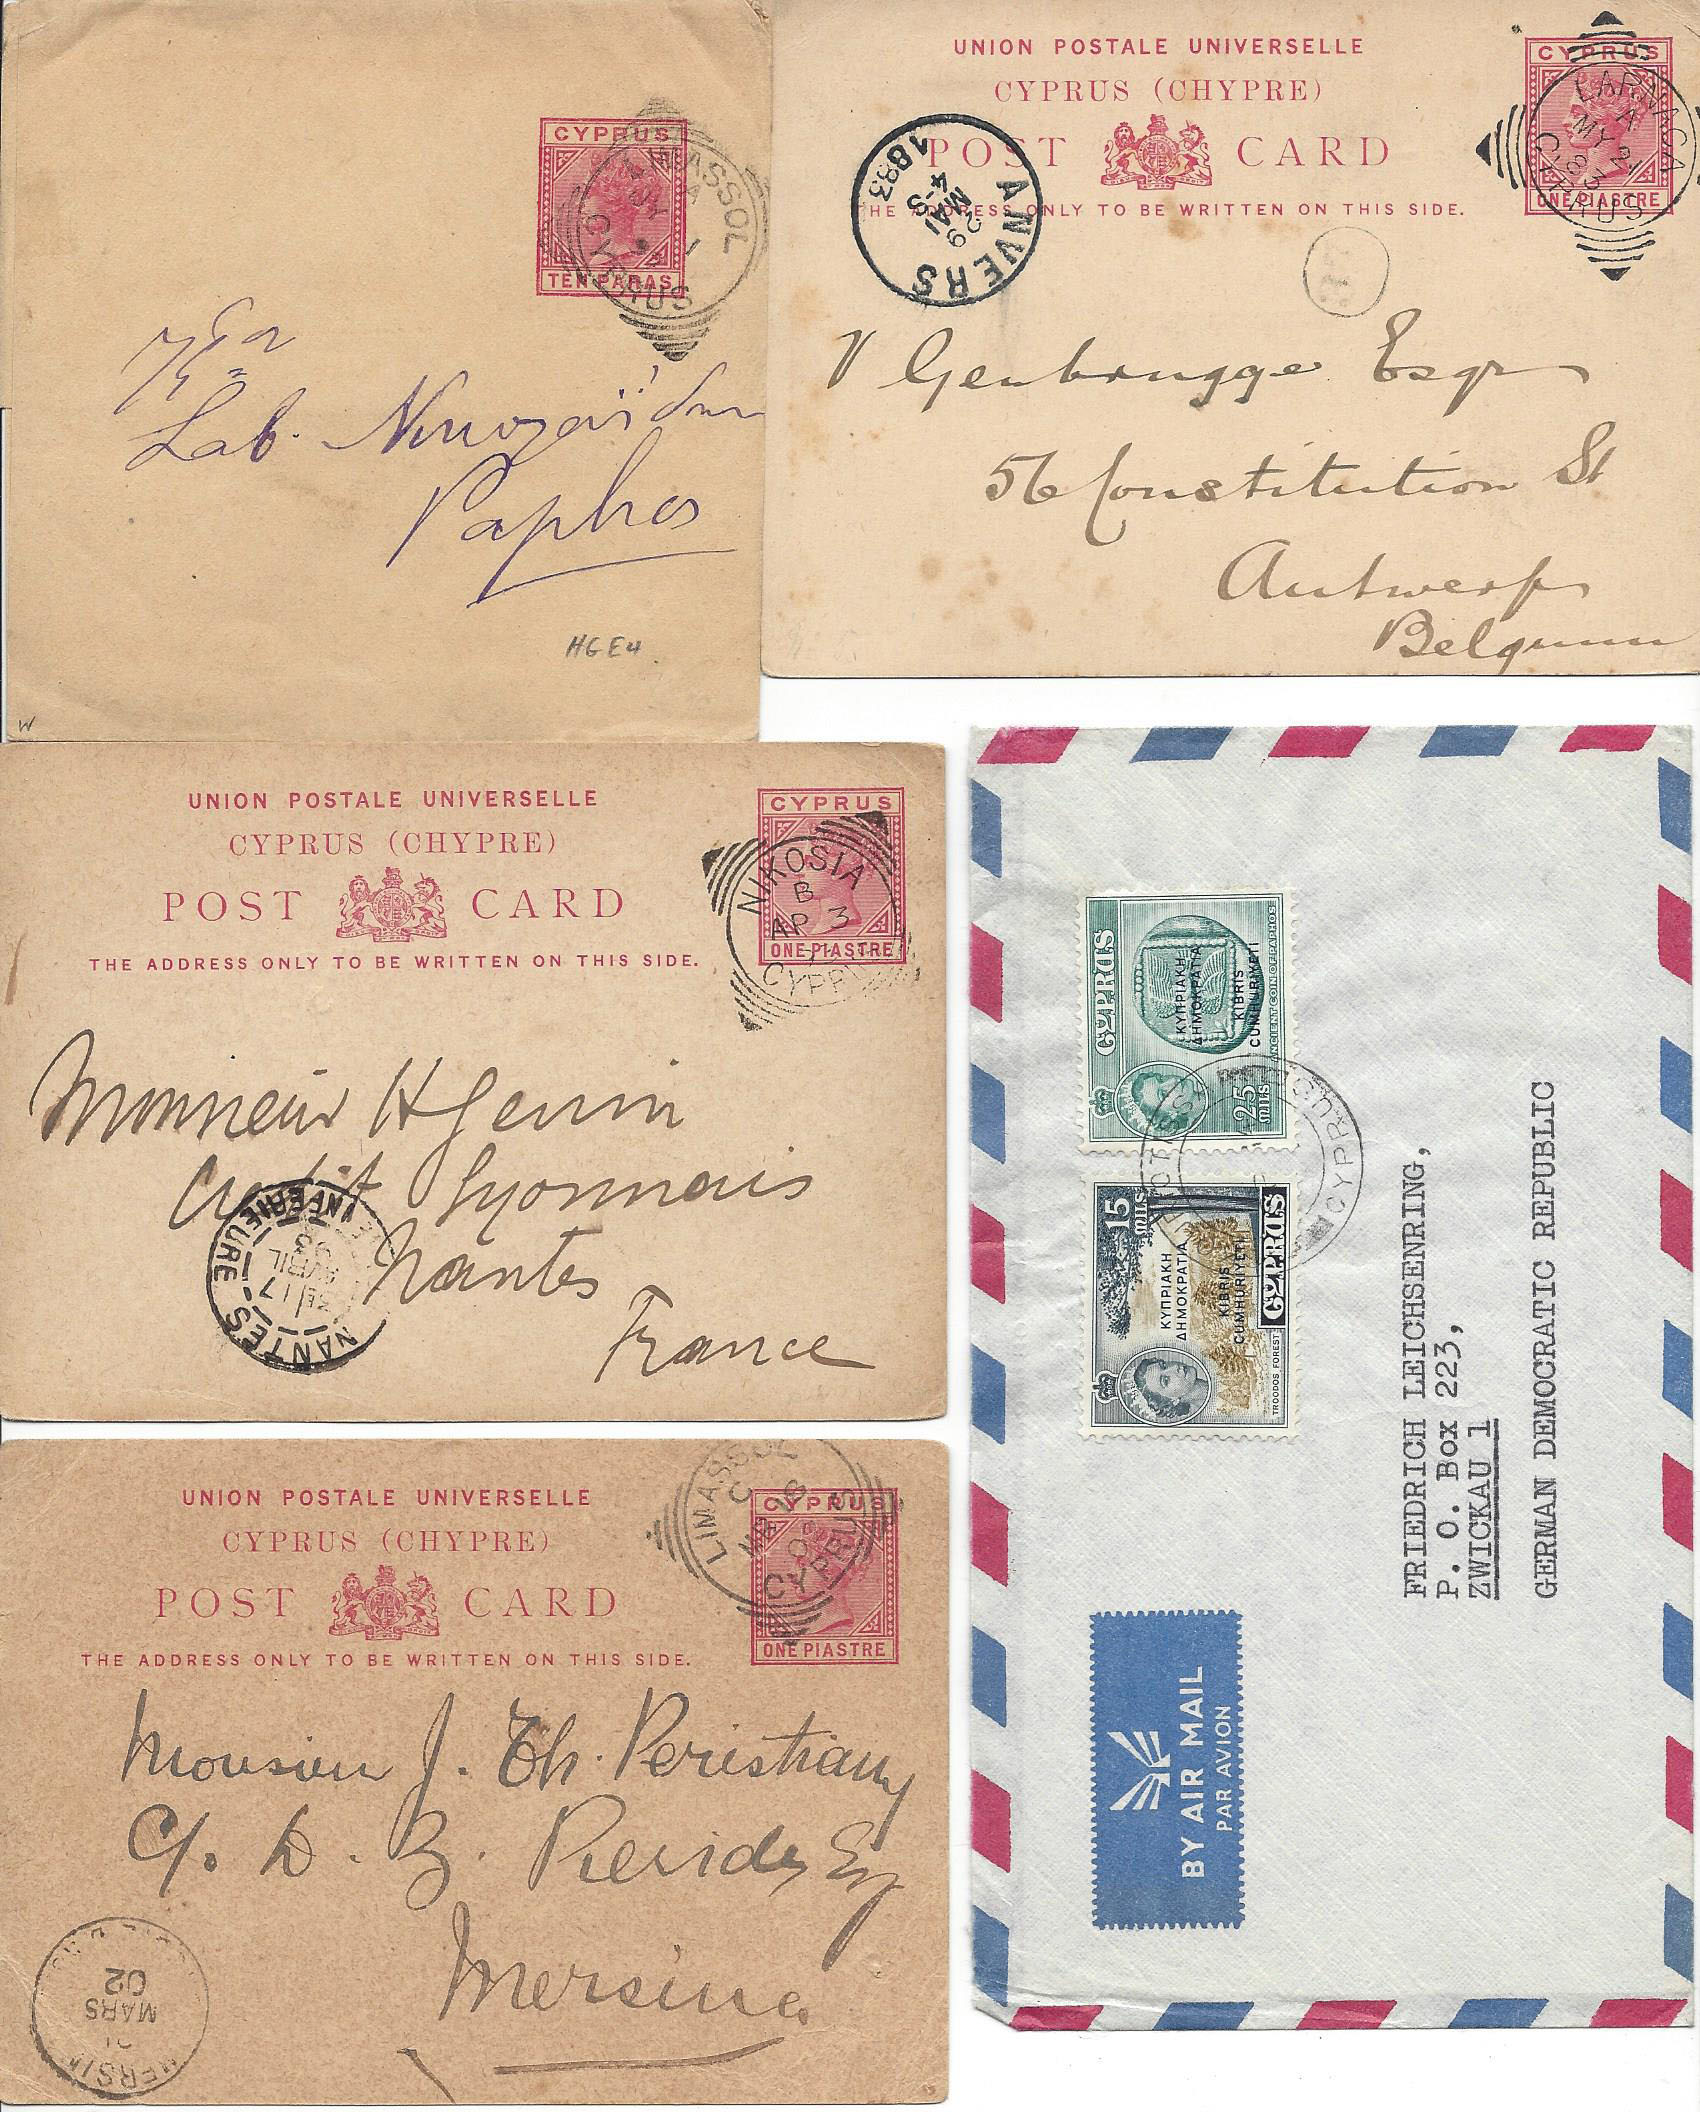 CYPRUS
TEN PARAS
LIMASSOL
CYPRUS
Lab.
Paphos
HGE4
W
UNION POSTALE UNIVERSELLE
CYPRUS (CHYPRE)
POST CARD
THE ADDRESS ONLY TO BE WRITTEN ON THIS SIDE.
CYPRUS
ONE PIASTRE
LARNACA
A
MY 21
83
CYPRUS
ANVERS
4-S
29 MAI
1883
V Genbrugge Esqr
56 Constitution St
Antwerp
Belgium
UNION POSTALE UNIVERSELLE
CYPRUS (CHYPRE)
POST CARD
THE ADDRESS ONLY TO BE WRITTEN ON THIS SIDE.
CYPRUS
ONE PIASTRE
NIKOSIA
B
AP 3
CYPRUS
Monsieur H Genin
Credit Lyonnais
Nantes
France
NANTES
INFERIEURE
17
AVRIL
UNION POSTALE UNIVERSELLE
CYPRUS (CHYPRE)
POST CARD
THE ADDRESS ONLY TO BE WRITTEN ON THIS SIDE.
CYPRUS
ONE PIASTRE
LIMASSOL
C
CYPRUS
Monsieur J. Th. Peristiany
C/o. D. Z. Pierides Esq
Mersina
MARS
02
CYPRUS
25 MILS
ANCIENT COIN OF PAPHOS
ΚΥΠΡΙΑΚΗ
ΔΗΜΟΚΡΑΤΙΑ
KIBRIS
CUMHURIYETI
15 MILS
CYPRUS
TROODOS FOREST
ΚΥΠΡΙΑΚΗ
ΔΗΜΟΚΡΑΤΙΑ
KIBRIS
CUMHURIYETI
CYPRUS
FRIEDRICH LEICHSENRING,
P. O. Box 223,
ZWICKAU 1
GERMAN DEMOCRATIC REPUBLIC
BY AIR MAIL
PAR AVION